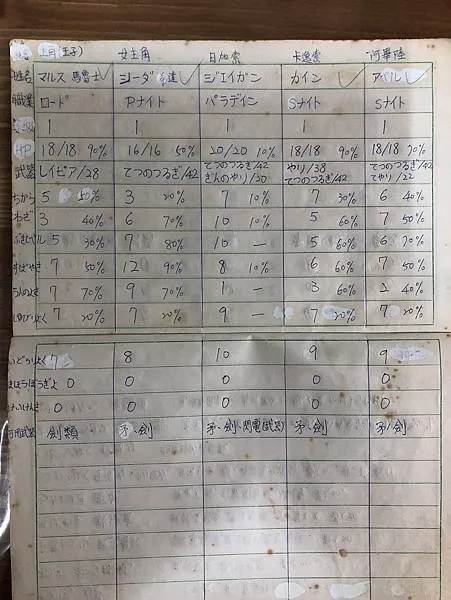 主角(王子) 女主角 日加索 卡逸索 阿畢陸
姓名 マルス 馬魯士 シーダ 希達 ジェイガン カイン アベル
職業 ロード Pナイト パラディン Sナイト Sナイト
1 1 1 1 1
HP 18/18 90% 16/16 50% 20/20 10% 18/18 90% 18/18 70%
武器 レイピア/28 てつのつるぎ/42 てつのつるぎ/42 ぎんのやり/30 やり/38 てつのつるぎ/42 てつのつるぎ/42 てやり/22
ちから 5 50% 3 20% 7 10% 7 30% 6 40%
わざ 3 40% 6 70% 10 10% 5 60% 7 50%
ぶきレベル 5 30% 7 80% 10 — 5 60% 6 70%
すばやさ 7 50% 12 90% 8 10% 6 60% 7 50%
うんのよさ 7 70% 9 70% 1 — 3 60% 2 40%
しゅびりょく 7 20% 7 20% 9 — 7 20% 7 20%
いどうりょく 7 8 10 9 9
まほうぼうぎょ 0 0 0 0 0
0 0 0 0 0
可用武器 劍類 矛、劍 矛、劍、閃電(武器) 矛、劍 矛、劍